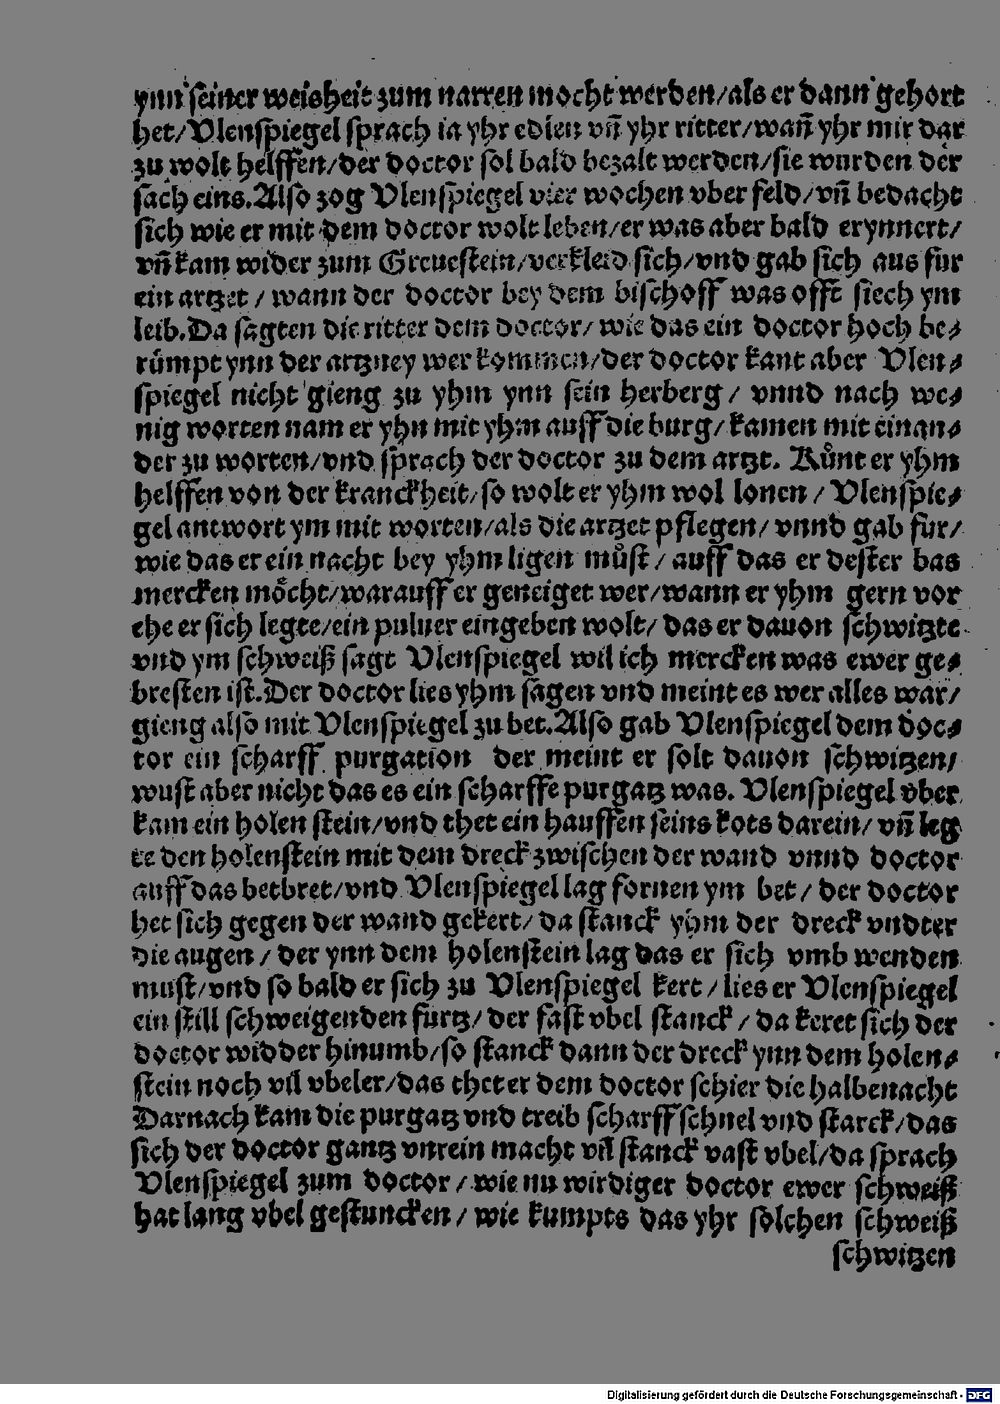 ynn seiner weisheit zum narren mocht werden/als er dann gehort
het/Vlenspiegel sprach ia yhr edlen vn̄ yhr ritter/wan̄ yhr mir dar
zu wolt helffen/der doctor sol bald bezalt werden/sie wurden der
sach eins. Also zog Vlenspiegel vier wochen vber feld/vn̄ bedacht
sich wie er mit dem doctor wolt leben/er was aber bald erynnert/
vn̄ kam wider zum Greuestein/verkleid sich/vnd gab sich aus fur
ein artzet / wann der doctor bey dem bischoff was offt siech ym
leib. Da sagten die ritter dem doctor/ wie das ein doctor hoch be⸗
rümpt ynn der artzney wer kommen/der doctor kant aber Vlen⸗
spiegel nicht gieng zu yhm ynn sein herberg / vnnd nach we⸗
nig worten nam er yhn mit yhm auff die burg/ kamen mit einan⸗
der zu worten/vnd sprach der doctor zu dem artzt. Kůnt er yhm
helffen von der kranckheit/so wolt er yhm wol lonen / Vlenspie⸗
gel antwort ym mit worten/als die artzet pflegen/ vnnd gab fur/
wie das er ein nacht bey yhm ligen můst / auff das er dester bas
mercken möcht/warauff er geneiget wer/wann er yhm gern vor
ehe er sich legte/ein puluer eingeben wolt/ das er dauon schwitzte
vnd ym schweiß sagt Vlenspiegel wil ich mercken was ewer ge⸗
bresten ist. Der doctor lies yhm sagen vnd meint es wer alles war/
gieng also mit Vlenspiegel zu bet. Also gab Vlenspiegel dem doc⸗
tor ein scharff purgation der meint er solt dauon schwitzen/
wust aber nicht das es ein scharffe purgatz was. Vlenspiegel vber
kam ein holen stein/vnd thet ein hauffen seins kots darein/ vn̄ leg
te den holenstein mit dem dreck zwischen der wand vnnd doctor
auff das betbret/vnd Vlenspiegel lag fornen ym bet / der doctor
het sich gegen der wand gekert/ da stanck yhm der dreck vndter
die augen / der ynn dem holenstein lag das er sich vmb wenden
must/vnd so bald er sich zu Vlenspiegel kert / lies er Vlenspiegel
ein still schweigenden furtz/ der fast vbel stanck / da keret sich der
doctor widder hinumb/so stanck dann der dreck ynn dem holen⸗
stein noch vil vbeler/das thet er dem doctor schier die halbe nacht
Darnach kam die purgatz vnd treib scharff schnel vnd starck/das
sich der doctor gantz vnrein macht vil stanck vast vbel/da sprach
Vlenspiegel zum doctor / wie nu wirdiger doctor ewer schweiß
hat lang vbel gestuncken / wie kumpts das yhr solchen schweiß
schwitzen
Digitalisierung gefördert durch die Deutsche Forschungsgemeinschaft - DFG